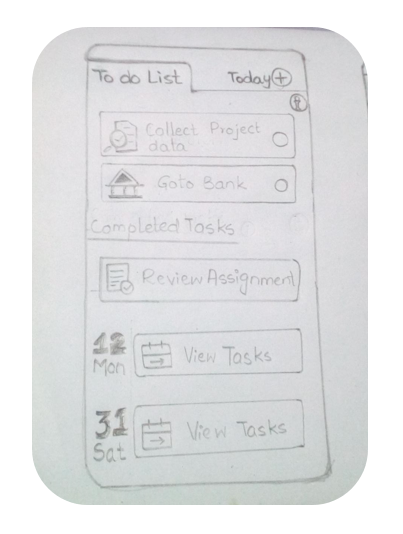 To do List
Today
Collect Project
data
Goto Bank
Completed Tasks
Review Assignment
12
Mon
View Tasks
31
Sat
View Tasks